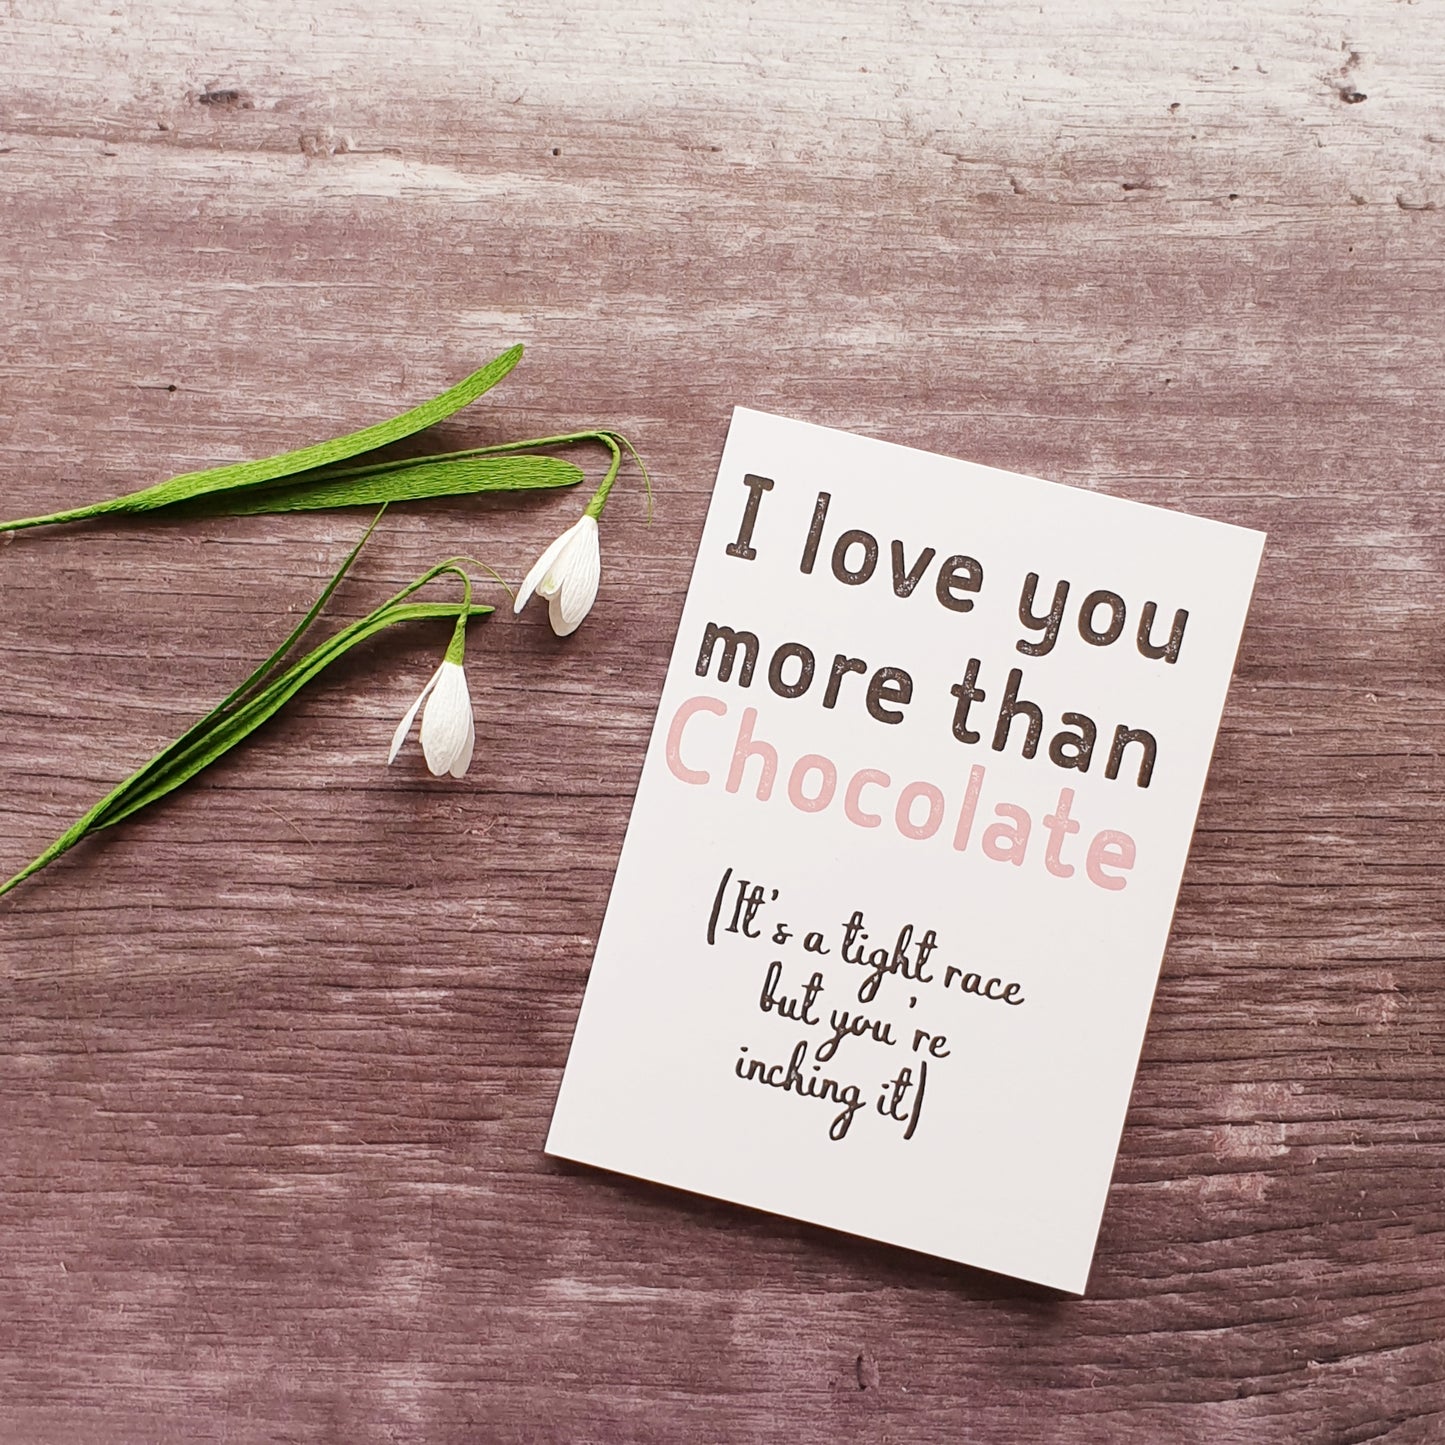 I love you
more than
Chocolate
(It's a tight race
but you're
inching it)